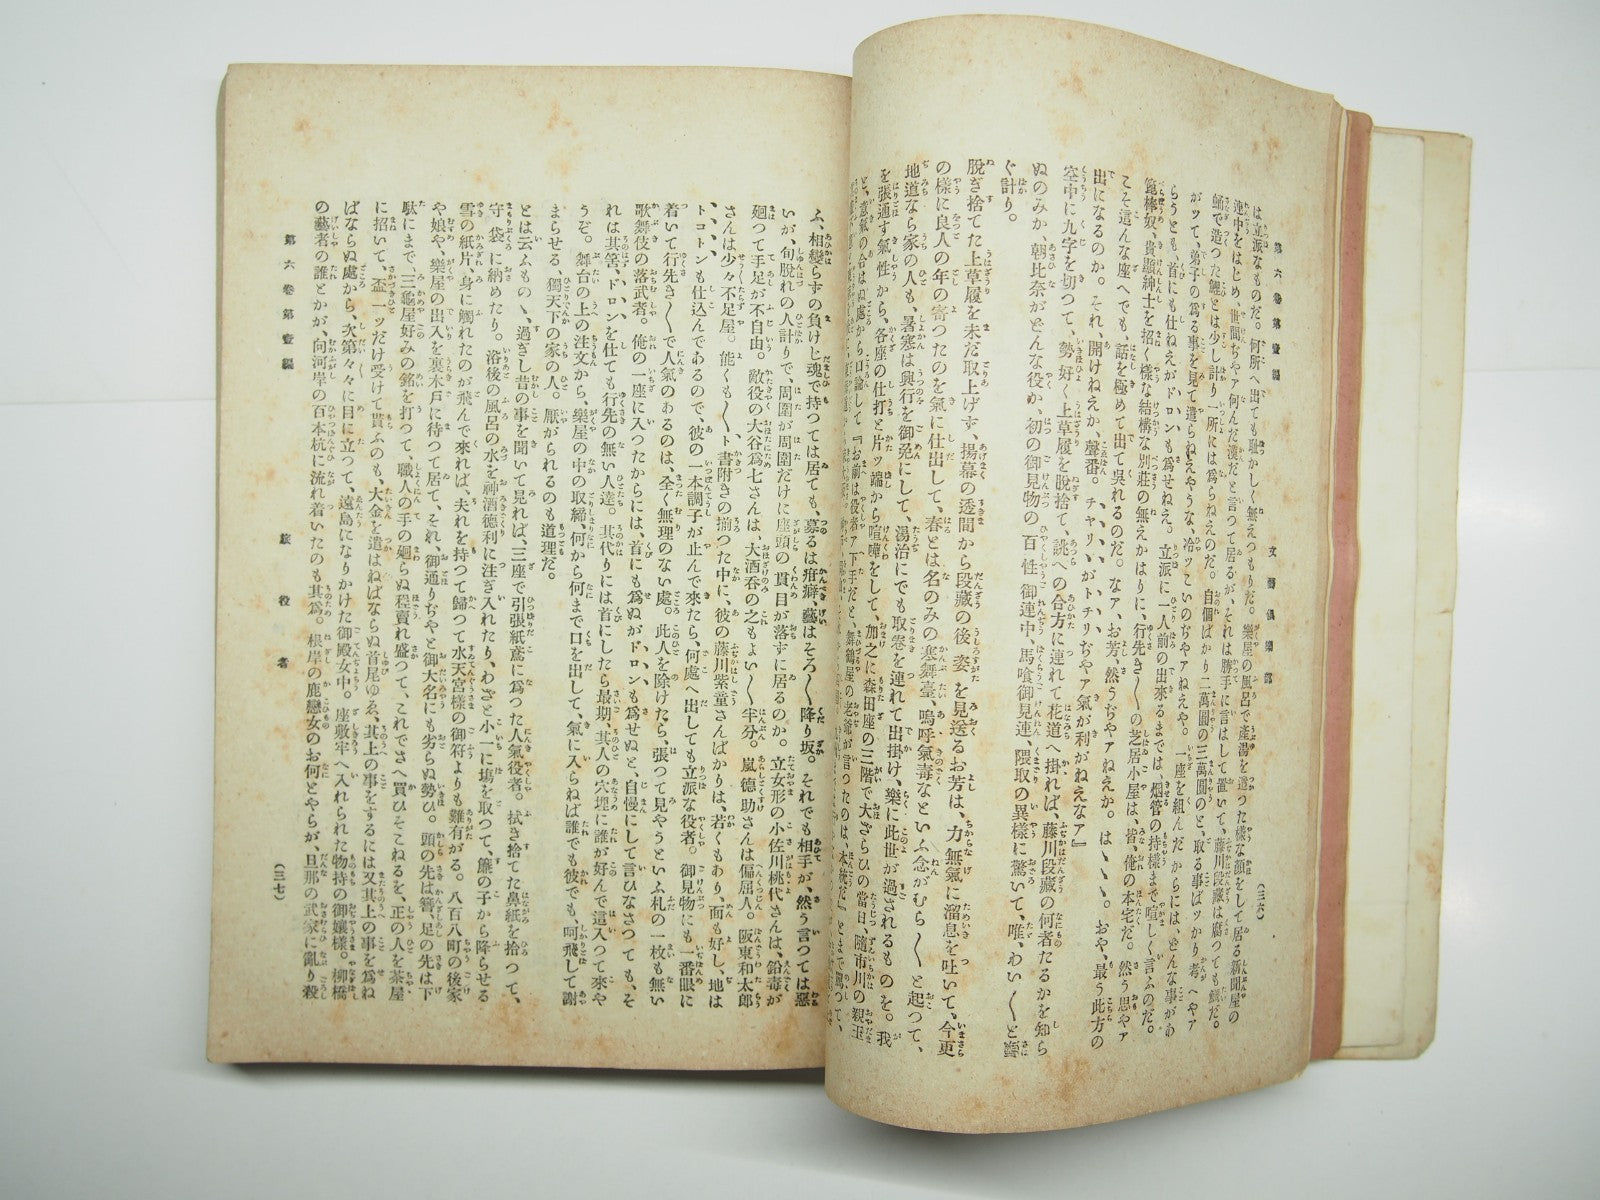 第六卷第壹編
文藝倶樂部
(三六)
は立派なものだ。何所へ出ても耻かしく無えつもりだ。樂屋の風呂で產湯を遣つた樣な顏をして居る新聞屋の
連中をはじめ、世間ぢやァ何んだ
と言つて居るが、それは勝手に言はして置いて、藤川段藏は腐つても鯛だ。
で造つた鯉とは少し計り一所には爲らねえのだ。自個ばかり二萬圓の三萬圓のと、取る事ばッかり考へやァ
がッて、弟子の爲る事を見て遣らねえやうな、冷ッこいのぢやァねえや。一座を組んだからには、どんな事があ
らうとも、首にも仕ねえがドロンも爲せねえ。立派に一人前の出來るまでは、烟管の持樣まで喧しく言ふのだ。
篦棒奴、貴顯紳士を招く樣な結構な別莊の無えかはりに、行先き〱の芝居小屋は、皆、俺の本宅だ。然う思やァ
こそ這んな座へでも、話を極めて出て吳れるのだ。なァ、お芳、然うぢやァねえか。はゝゝゝ。おや、最う此方の
出になるのか。それ、開けねえか、聲番。チャリンがトチリぢやァ氣が利がねえなア』
空中に九字を切つて、勢好く上草履を脫捨て、誂への合方に連れて花道へ掛れば、藤川段藏の何者たるかを知ら
ぬのみか、朝比奈がどんな役か、初の御見物の百性御連中、馬喰御見連、隈取の異樣に驚いて、唯、わい〱と騷
ぐ計り。
脫ぎ捨てた上草履を未だ取上げず、揚幕の透間から段藏の後姿を見送るお芳は、力無氣に溜息を吐いて、今更
の樣に良人の年の寄つたのを氣に仕出して、春とは名のみの寒舞臺、嗚呼氣毒なといふ念がむら〱と起つて、
地道なら家の人も、暑寒は興行を御免にして、湯治にでも取卷を連れて出掛け、樂に此世が過されるものを。我
を張通す氣性から、各座の仕打と片ッ端から喧嘩をして、加之に森田座の三階で大ざらひの當日、隨市川の親玉
と、意氣の合はぬ處から口論して『お前は役者ァ下手だと、舞鶴屋の老爺が言つたのは、本統だ』とまで罵つて、
ふ、相變らずの負けじ魂で持つては居ても、募るは疳癖、藝はそろ〱降り坂。それでも相手が、然う言つては惡
いが、旬脫れの人計りで、周圍が周圍だけに座頭の貫目が落ずに居るのか。立女形の小佐川桃代さんは、鉛毒が
廻つて手足が不自由。敵役の大谷爲七さんは、大酒呑の之もよい〱半分。嵐德助さんは偏屈人。阪東和太郞
さんは少々不足屋。能くも〱ト書附きの揃つた中に、彼の藤川紫童さんばかりは、若くもあり、面も好し、地は
トコトンも仕込んであるので、彼の一本調子が止んで來たら、何處へ出しても立派な役者。御見物にも一番眼に
着いて行先き〱で人氣のあるのは、全く無理のない處。此人を除けたら、張つて見やうといふ札の一枚も無い
歌舞伎の落武者。俺の一座に入つたからには、首にも爲ぬがドロンも爲せぬと、自慢にして言ひなさつても、そ
れは其筈、ドロンを仕ても行先の無い人達。其代りには首にしたら最期、其人の穴埋に誰が好んで這入つて來や
うぞ。舞台の上の注文から、樂屋の中の取締、何から何まで口を出して、氣に入らねば誰でも彼でも、呵飛して謝
まらせる、獨天下の家の人。厭がられるのも道理だ。
とは云ふものゝ、過ぎし昔の事を聞いて見れば、三座で引張紙鳶に爲つた人氣役者。拭き捨てた鼻紙を拾つて、
守袋に納めたり。浴後の風呂の水を神酒德利に注ぎ入れたり、わざと小一に塲を取つて、簾の子から降らせる
雪の紙片、身に觸れたのが飛んで來れば、夫れを持つて歸つて水天宮樣の御符よりも難有がる。八百八町の後家
や娘や、樂屋の出入を裏木戶に待つて居て、それ、御通りぢやと御大名にも劣らぬ勢ひ。頭の先は簪、足の先は下
駄にまで、三龜屋好みの銘を打つて、職人の手の廻らぬ程賣れ盛つて、これでさへ買ひそこねるを、正の人を茶屋
に招いて、盃一ッだけ受けて貰ふのも、大金を遣はねばならぬ首尾ゆゑ、其上の事をするには又其上の事を爲ね
ばならぬ處から、次第々々に目に立つて、遠島になりかけた御殿女中。座敷牢へ入れられた物持の御孃樣。柳橋
の藝者の誰とかが、向河岸の百本杭に流れ着いたのも其爲。根岸の鹿戀女のお何とやらが、旦那の武家に亂り殺
第六卷第壹編
旅役者
(三七)